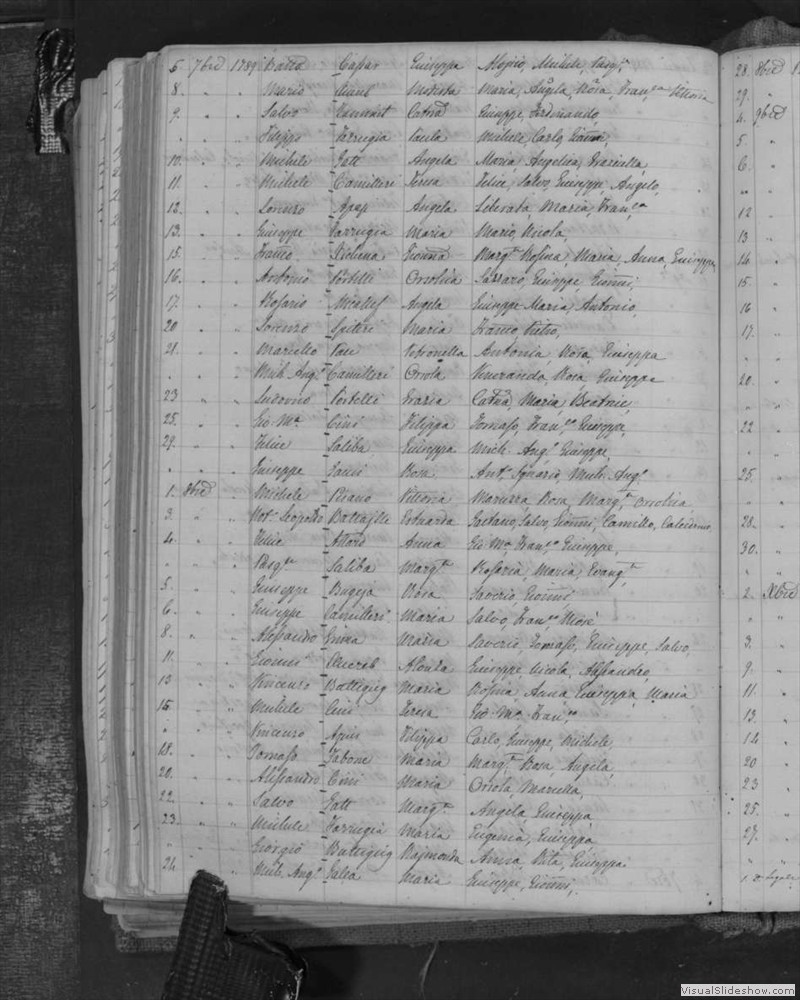 5 7bre 1789 Batta Capar Giuseppa Aloisio, Michele, Pasq.e
8. " " Mario Maria, Angla, Rosa, Fran.ca Vittoria
9. " " Salvo Catnd Giuseppe, Ferdinando,
" " Filippo Farrugia Paula Michele, Carlo, Gionni,
10. " " Michele Gatt Angela Maria Angelica, Graziella,
11. " " Michele Camilleri Teresa Felice, Salvo, Giuseppe, Angelo,
12. " " Lorenzo Apap Angela Liberata, Maria, Fran.ca
13. " " Giuseppe Farrugia Maria Mario, Nicola,
15. " " Franco Xicluna Gionna Marg.ta Rosina Maria, Anna, Giuseppe,
16. " " Antonio Portelli Orsolica Lazzaro, Giuseppe, Gionni,
17. " " Rosario Meallef Angela Giuseppe Maria, Antonio,
20 " " Lorenzo Spiteri Maria Franco Pietro,
21. " " Marcello Pace Petronella Antonia Rosa, Giuseppa
" " Mich. Ang.o Camilleri Orsola Veneranda, Rosa, Giuseppe
23 " " Ludovico Portelli Grazia Catnd, Maria, Beatrice,
25. " " Gio. M.a Cini Filippa Tomaso, Fran.co, Giuseppa,
29. " " Felice Saliba Giuseppa Mich. Ang.o, Giuseppe,
" " Giuseppe Rosa Ant.o Ignazio, Mich. Ang.o
1. 8bre " Michele Pisano Vittoria Maruzza Rosa, Marg.ta, Orsolica,
3. " " Not.r Leopoldo Battaglia Eduarda Gaetano, Salvo, Gionni, Camillo, Calcidonio,
4. " " Felice Attard Anna Gio. M.a, Fran.co, Giuseppe,
" " Pasq.le Saliba Marg.ta Rosaria, Maria, Evang.ta
5. " " Giuseppe Bugeja Rosa Saverio, Gionni
6. " " Giuseppe Camilleri Maria Salvo, Fran.co Mosè
8. " " Alessandro Grima Maria Saverio, Tomaso, Giuseppe, Salvo,
11. " " Gionni Schereb Alonza Giuseppe, Nicola, Alessandro,
13 " " Vincenzo Buttigieg Maria Rosina Anna, Giuseppa, Maria
15. " " Michele Cini Teresa Gio. M.a, Fran.co
" " Vincenzo Apis Filippa Carlo, Giuseppe, Michele,
18. " " Tomaso Tabone Maria Marg.ta Rosa, Angela,
20. " " Alessandro Cini Maria Orsola, Mariella,
22. " " Salvo Gatt Marg.ta Angela, Giuseppa
23. " " Michele Farrugia Maria Eugenia, Giuseppa,
" " Giorgio Buttigieg Raimonda Anna, Rita, Giuseppa
26. " " Mich. Ang.o Galea Maria Giuseppe, Gionni,
28. 8bre
29. "
4. 9bre
5. "
6. "
" "
12 "
13 "
14 "
15. "
16 "
17. "
20. "
22 "
25. "
28. "
30. "
2. Xbre
3. "
9. "
11. "
13. "
14 "
20 "
23 "
25. "
27. "
VisualSlideshow.com